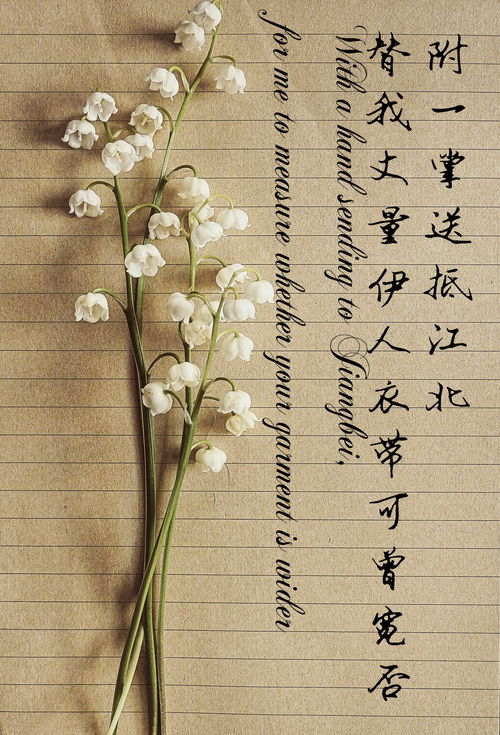 附一掌送抵江北
替我丈量伊人衣带可曾宽否
With a hand sending to Jiangbei,
for me to measure whether your garment is wider